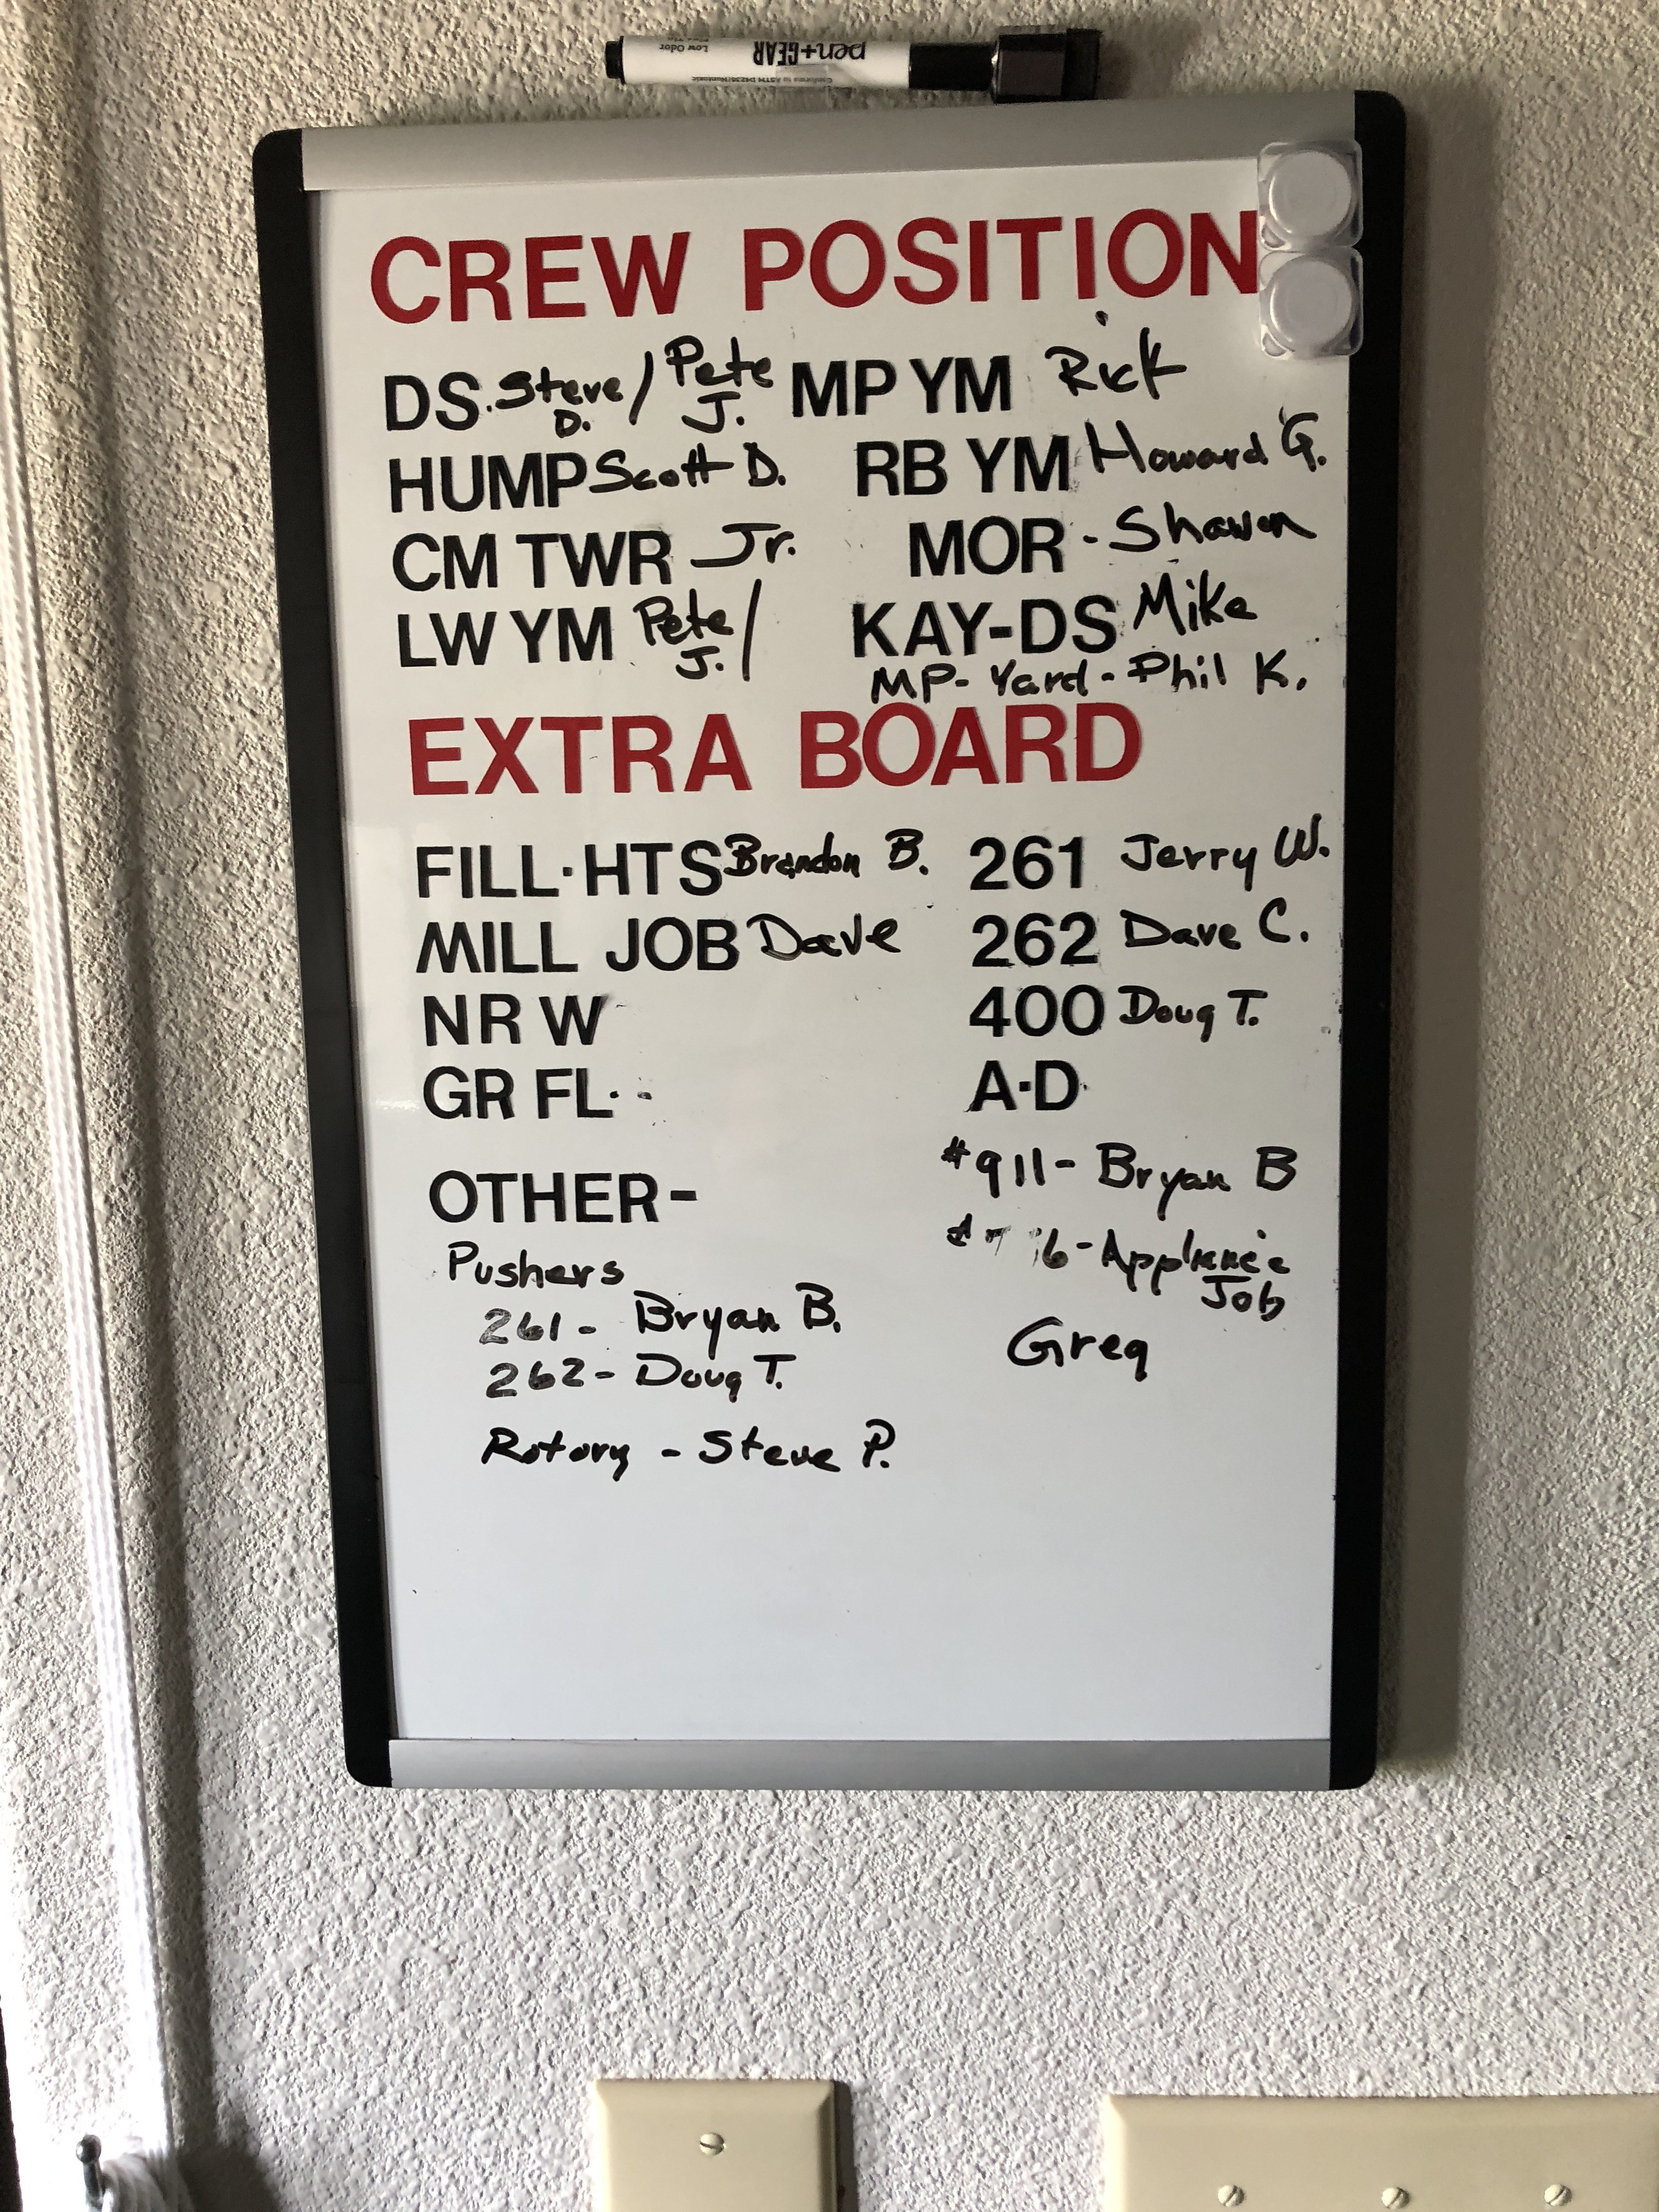 pen+GEAR
Low Odor
CREW POSITION
DS Steve D. / Pete J. MP YM Rick
HUMP Scott D. RB YM Howard G.
CM TWR Jr. MOR - Shawn
LW YM Pete J. / KAY-DS Mike
MP- Yard - Phil K.
EXTRA BOARD
FILL·HTS Brandon B. 261 Jerry W.
MILL JOB Dave 262 Dave C.
NRW 400 Doug T.
GR FL·- A·D
#911- Bryan B
OTHER-
6-Appliance
Job
Pushers
261- Bryan B.
Greg
262- Doug T.
Rotory - Steve P.